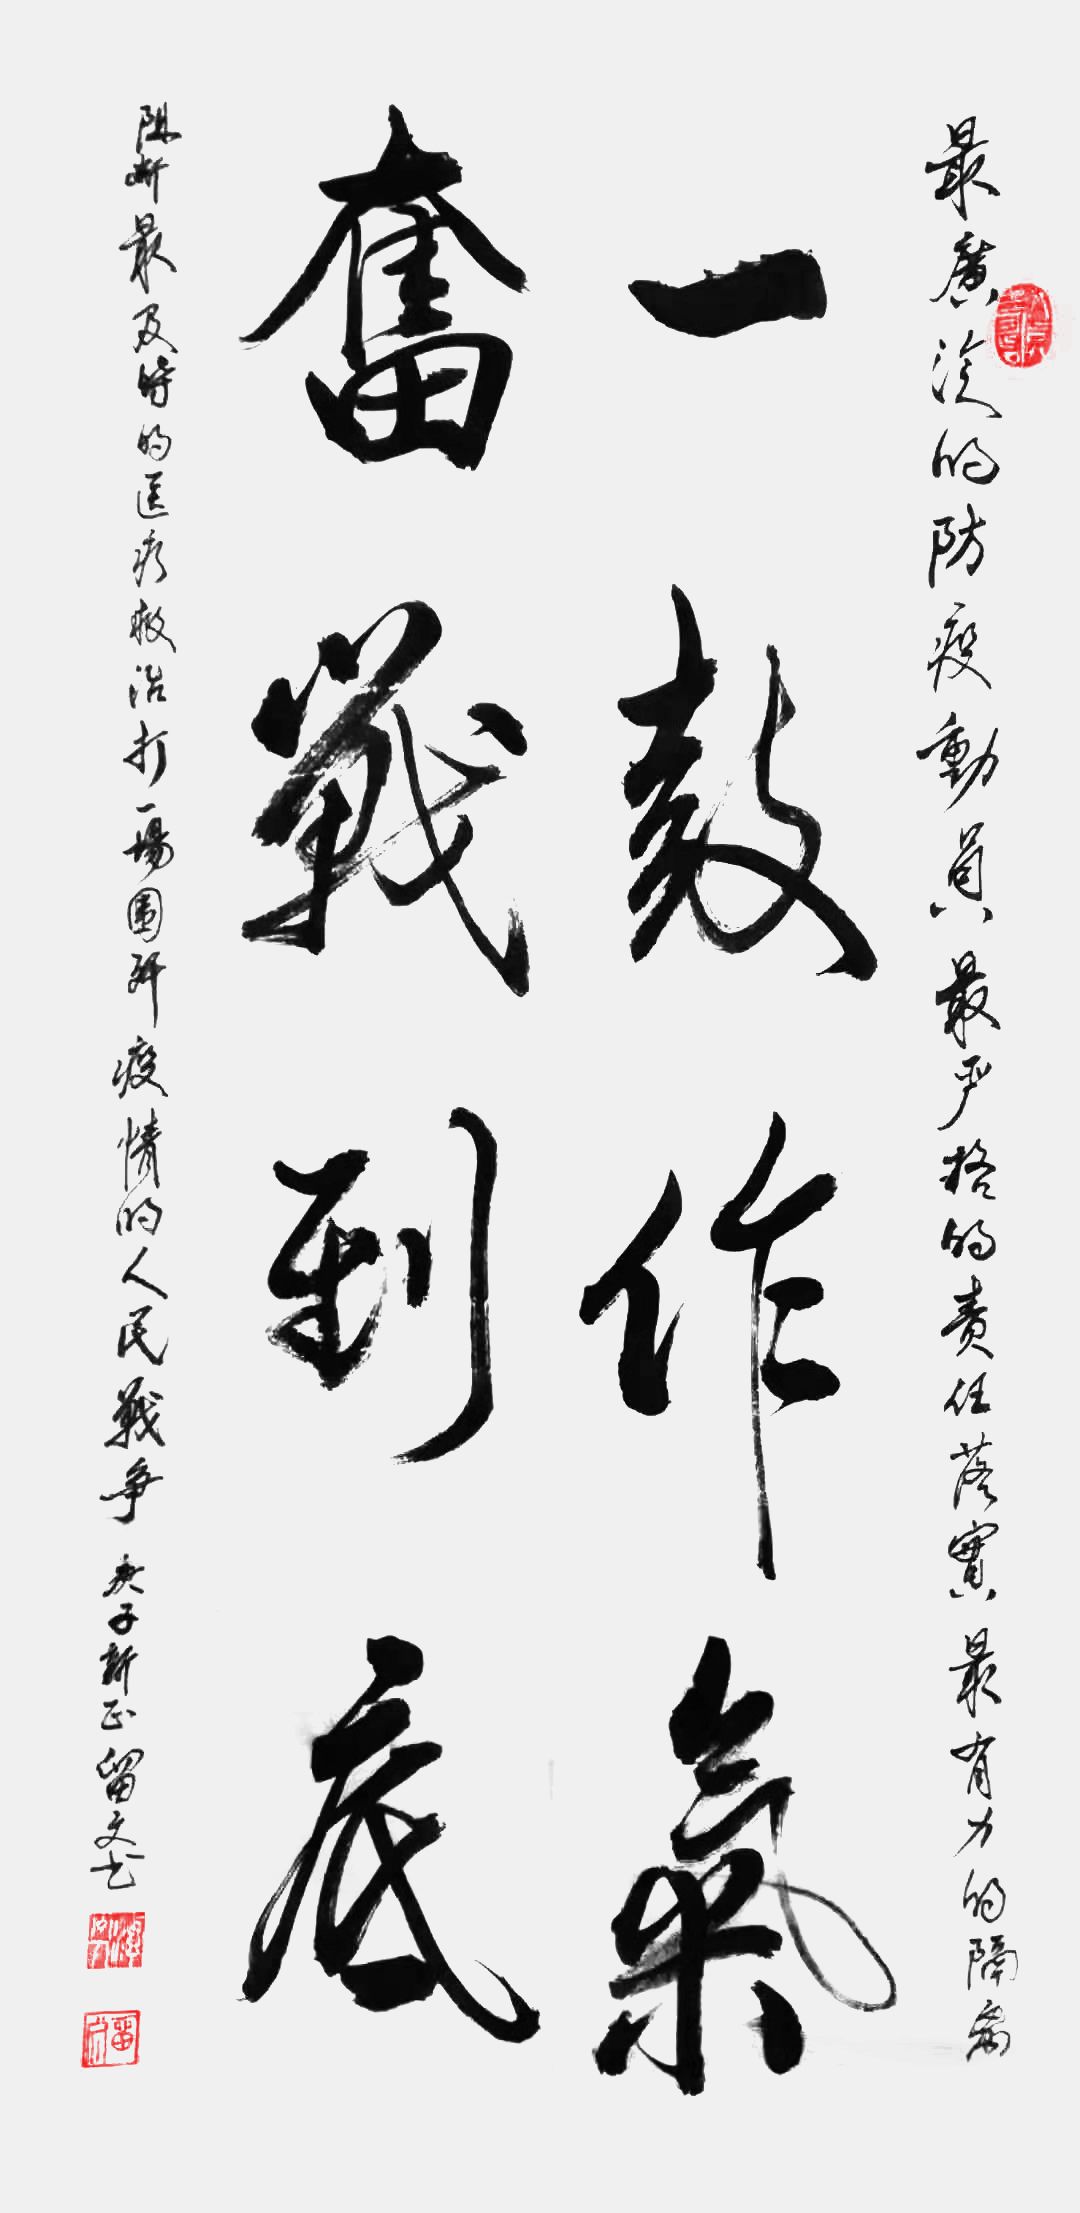 最廣泛的防疫動員最严格的責任落實最有力的隔离
一鼓作氣
奮戰到底
阻断最及時的医疗救治打一場围歼疫情的人民戰争 庚子新正留文书